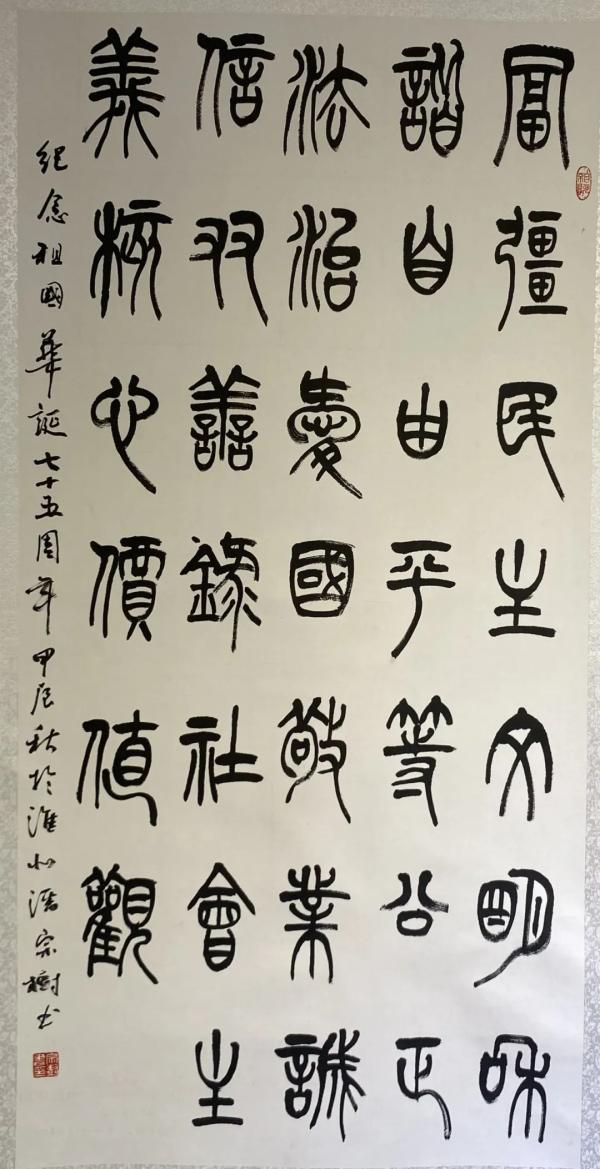 富彊民主文明和
諧自由平等公正
法治愛國敬業誠
信友善錄社會主
義核心價值觀
紀念祖國華誕七十五周年甲辰秋於淮北潘宗樹书